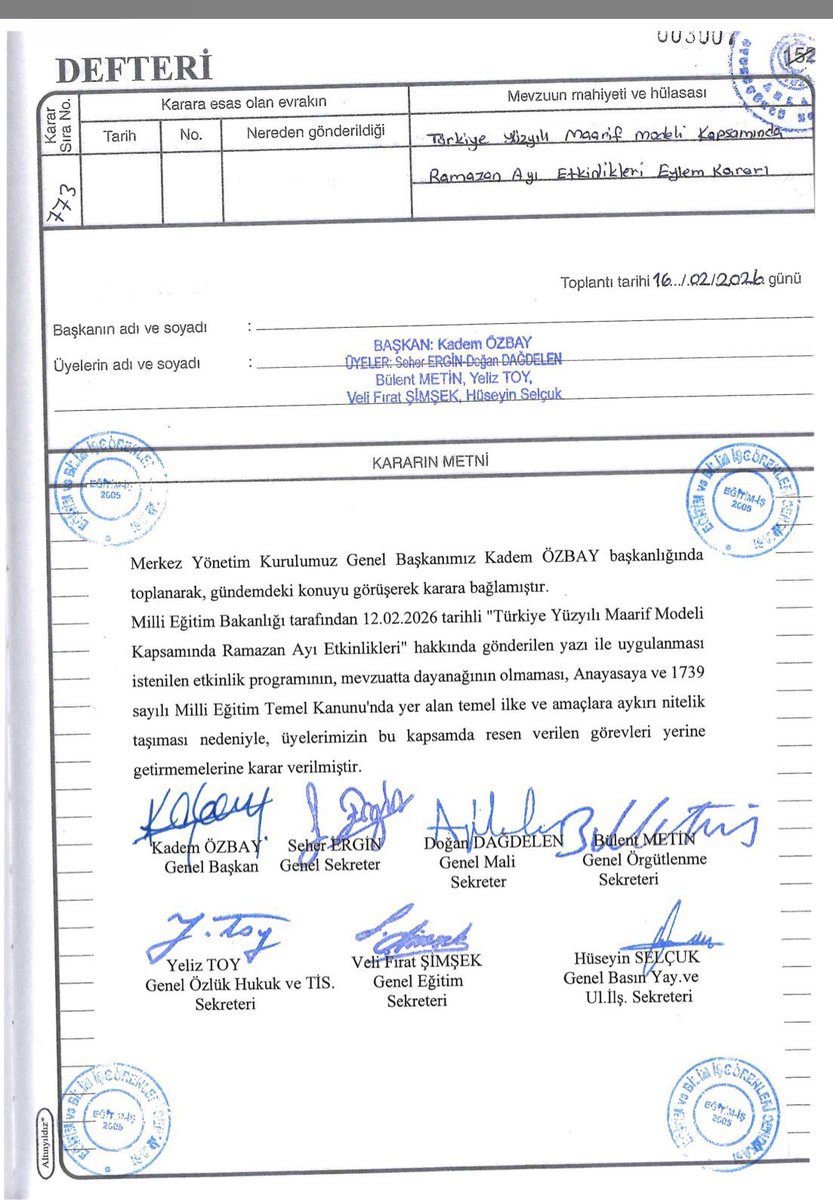 003007
152
DEFTERİ
Karar Sıra No.
Karara esas olan evrakın
Mevzuun mahiyeti ve hülasası
Tarih No. Nereden gönderildiği
Türkiye Yüzyılı Maarif Modeli Kapsamında
Ramazan Ayı Etkinlikleri Eylem Kararı
773
Toplantı tarihi 16../.02/2026 günü
Başkanın adı ve soyadı :
BAŞKAN: Kadem ÖZBAY
Üyelerin adı ve soyadı :
ÜYELER: Seher ERGİN-Doğan DAĞDELEN
Bülent METİN, Yeliz TOY,
Veli Fırat ŞİMŞEK, Hüseyin Selçuk
KARARIN METNİ
EĞİTİM-İŞ
2005
EĞİTİM-İŞ
2005
Merkez Yönetim Kurulumuz Genel Başkanımız Kadem ÖZBAY başkanlığında
toplanarak, gündemdeki konuyu görüşerek karara bağlamıştır.
Milli Eğitim Bakanlığı tarafından 12.02.2026 tarihli "Türkiye Yüzyılı Maarif Modeli
Kapsamında Ramazan Ayı Etkinlikleri" hakkında gönderilen yazı ile uygulanması
istenilen etkinlik programının, mevzuatta dayanağının olmaması, Anayasaya ve 1739
sayılı Milli Eğitim Temel Kanunu'nda yer alan temel ilke ve amaçlara aykırı nitelik
taşıması nedeniyle, üyelerimizin bu kapsamda resen verilen görevleri yerine
getirmemelerine karar verilmiştir.
Kadem ÖZBAY Seher ERGİN Doğan DAĞDELEN Bülent METİN
Genel Başkan Genel Sekreter Genel Mali Genel Örgütlenme
Sekreter Sekreteri
Y. Toy
Yeliz TOY Veli Fırat ŞİMŞEK Hüseyin SELÇUK
Genel Özlük Hukuk ve TİS. Genel Eğitim Genel Basın Yay.ve
Sekreteri Sekreteri Ul.İlş. Sekreteri
EĞİTİM-İŞ
2005
EĞİTİM-İŞ
2005
Altınyıldız